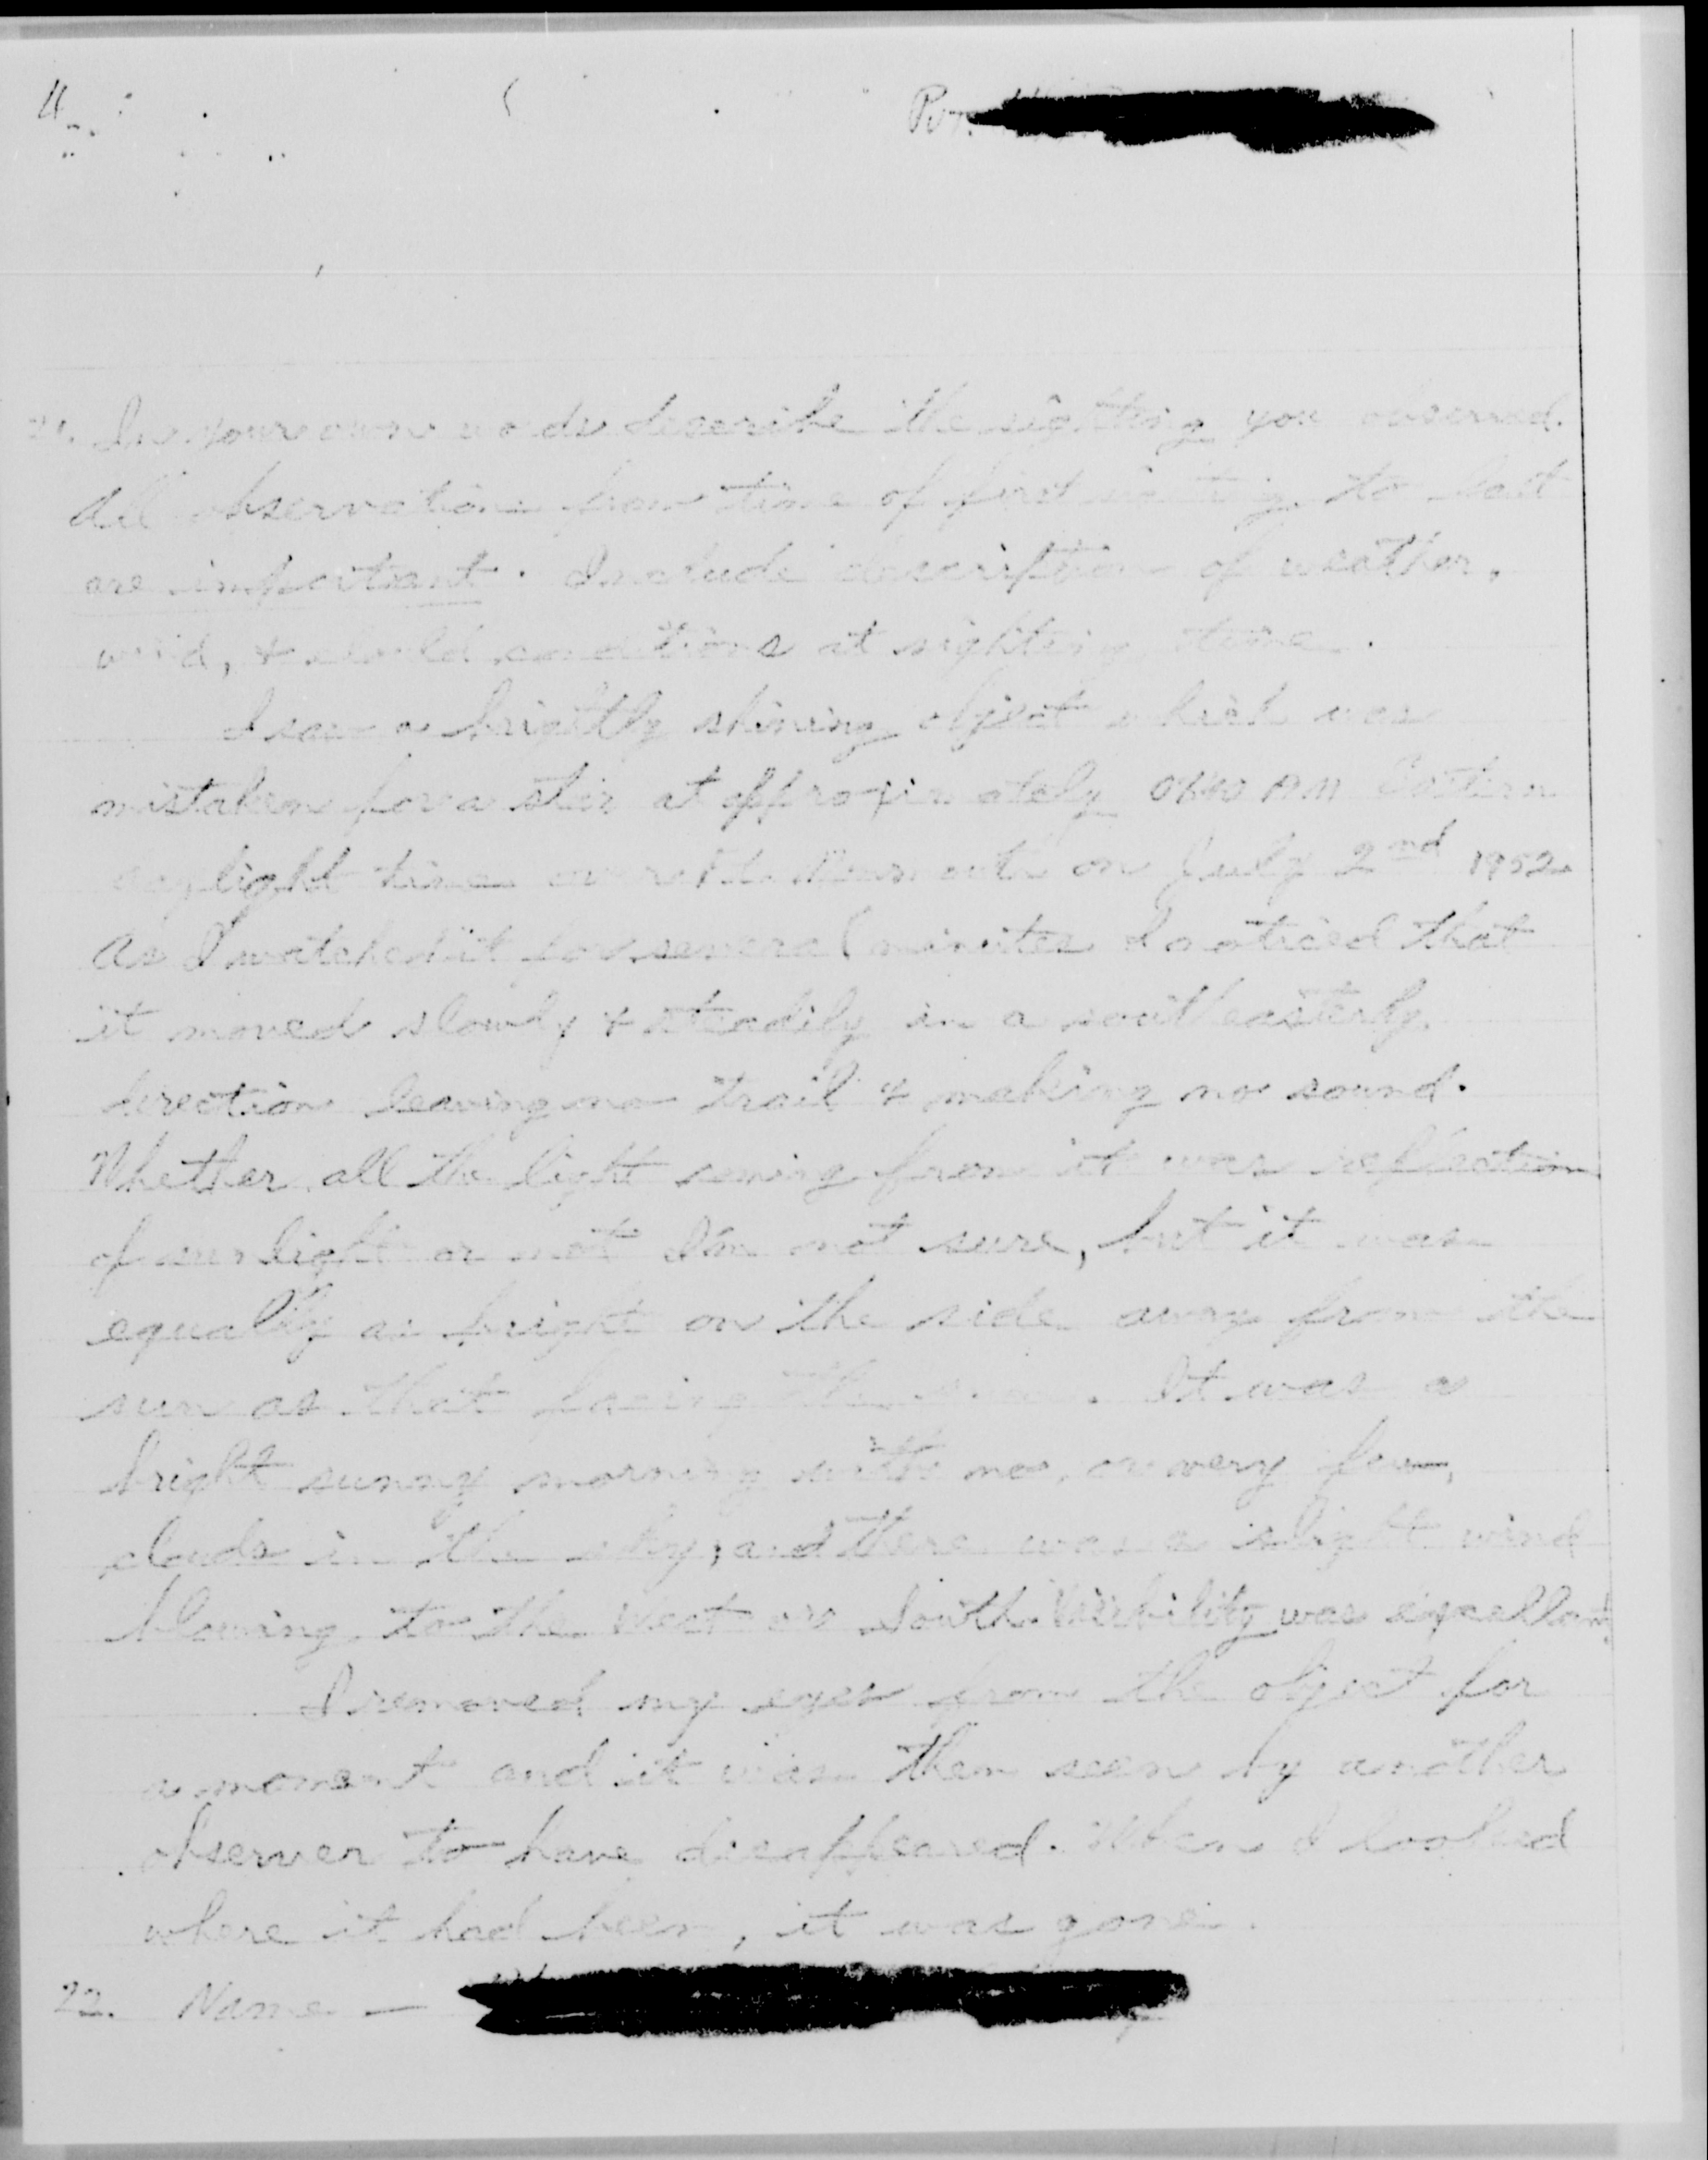 Pvt.
21. In your own words describe the sighting you observed.
All observations from time of first sighting to last
are important. Include description of weather,
wind, & cloud conditions at sighting time.
I saw a brightly shining object which was
mistaken for a star at approximately AM Eastern
daylight time over Ft. Monmouth on July 2nd 1952.
As I watched it for several minutes I noticed that
it moved slowly & steadily in a southeasterly
direction leaving no trail & making no sound.
Whether all the light coming from it was reflection
of sunlight or not I'm not sure, but it was
equally as bright on the side away from the
sun as that facing the sun. It was a
bright sunny morning with no, or very few,
clouds in the sky, and there was a slight wind
blowing to the West or South. Visibility was excellant.
I removed my eyes from the object for
a moment and it was then seen by another
observer to have disappeared. When I looked
where it had been, it was gone.
22. Name —